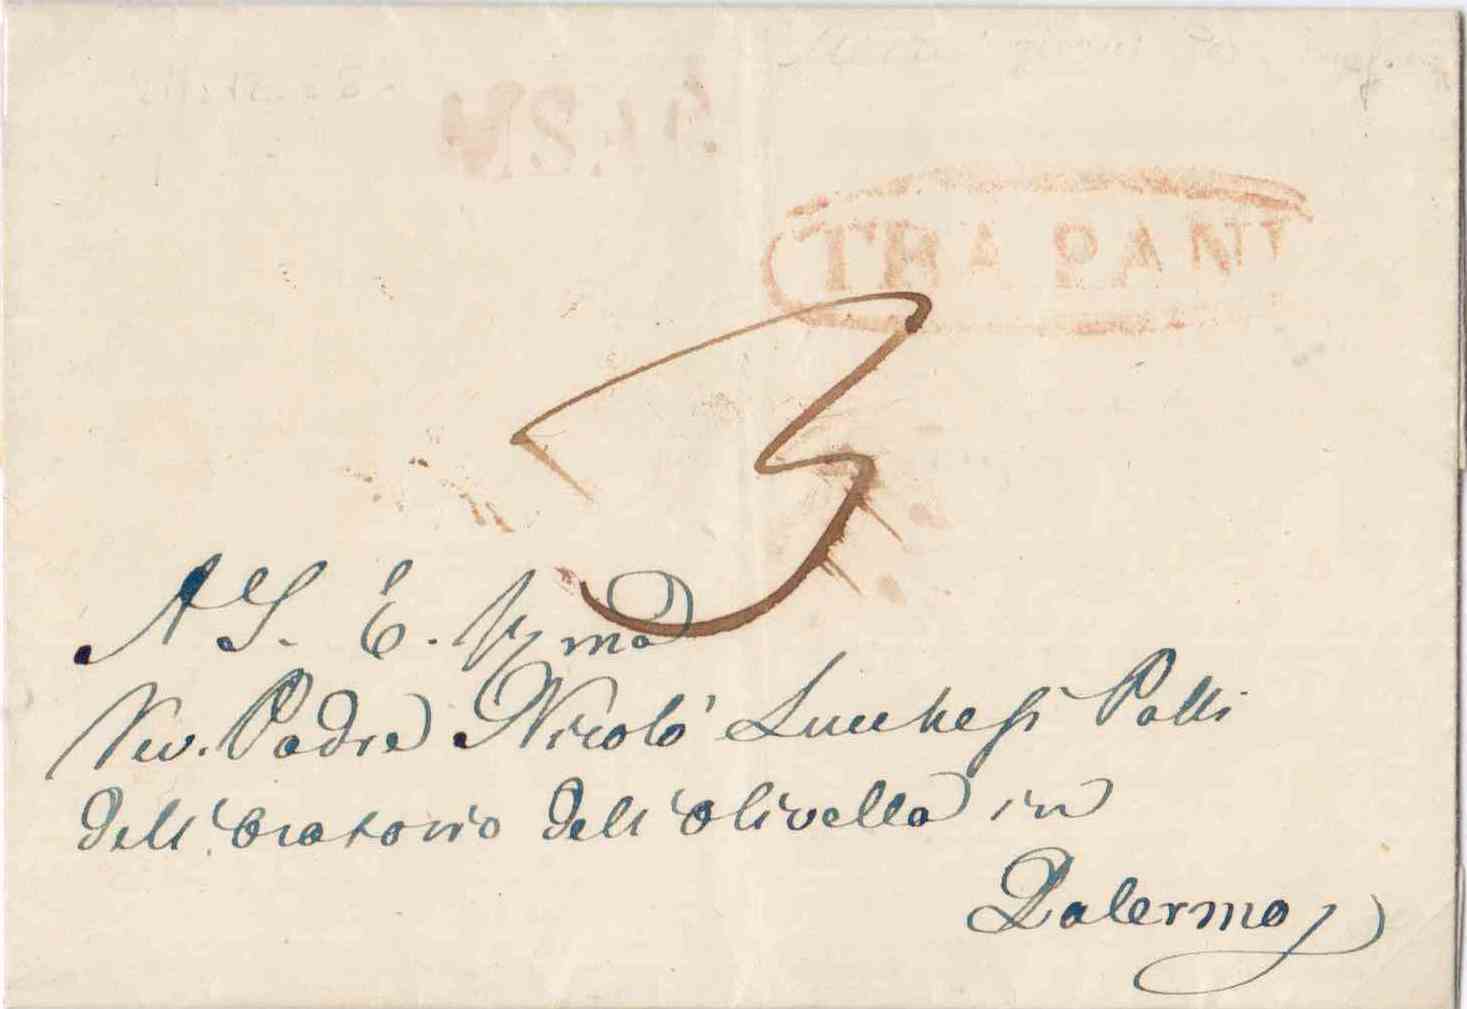 TRAPANI
3
A S. E.
Rev. Padre Nicolò Lucchesi Palli
dell'Oratorio dell'Olivella in
Palermo